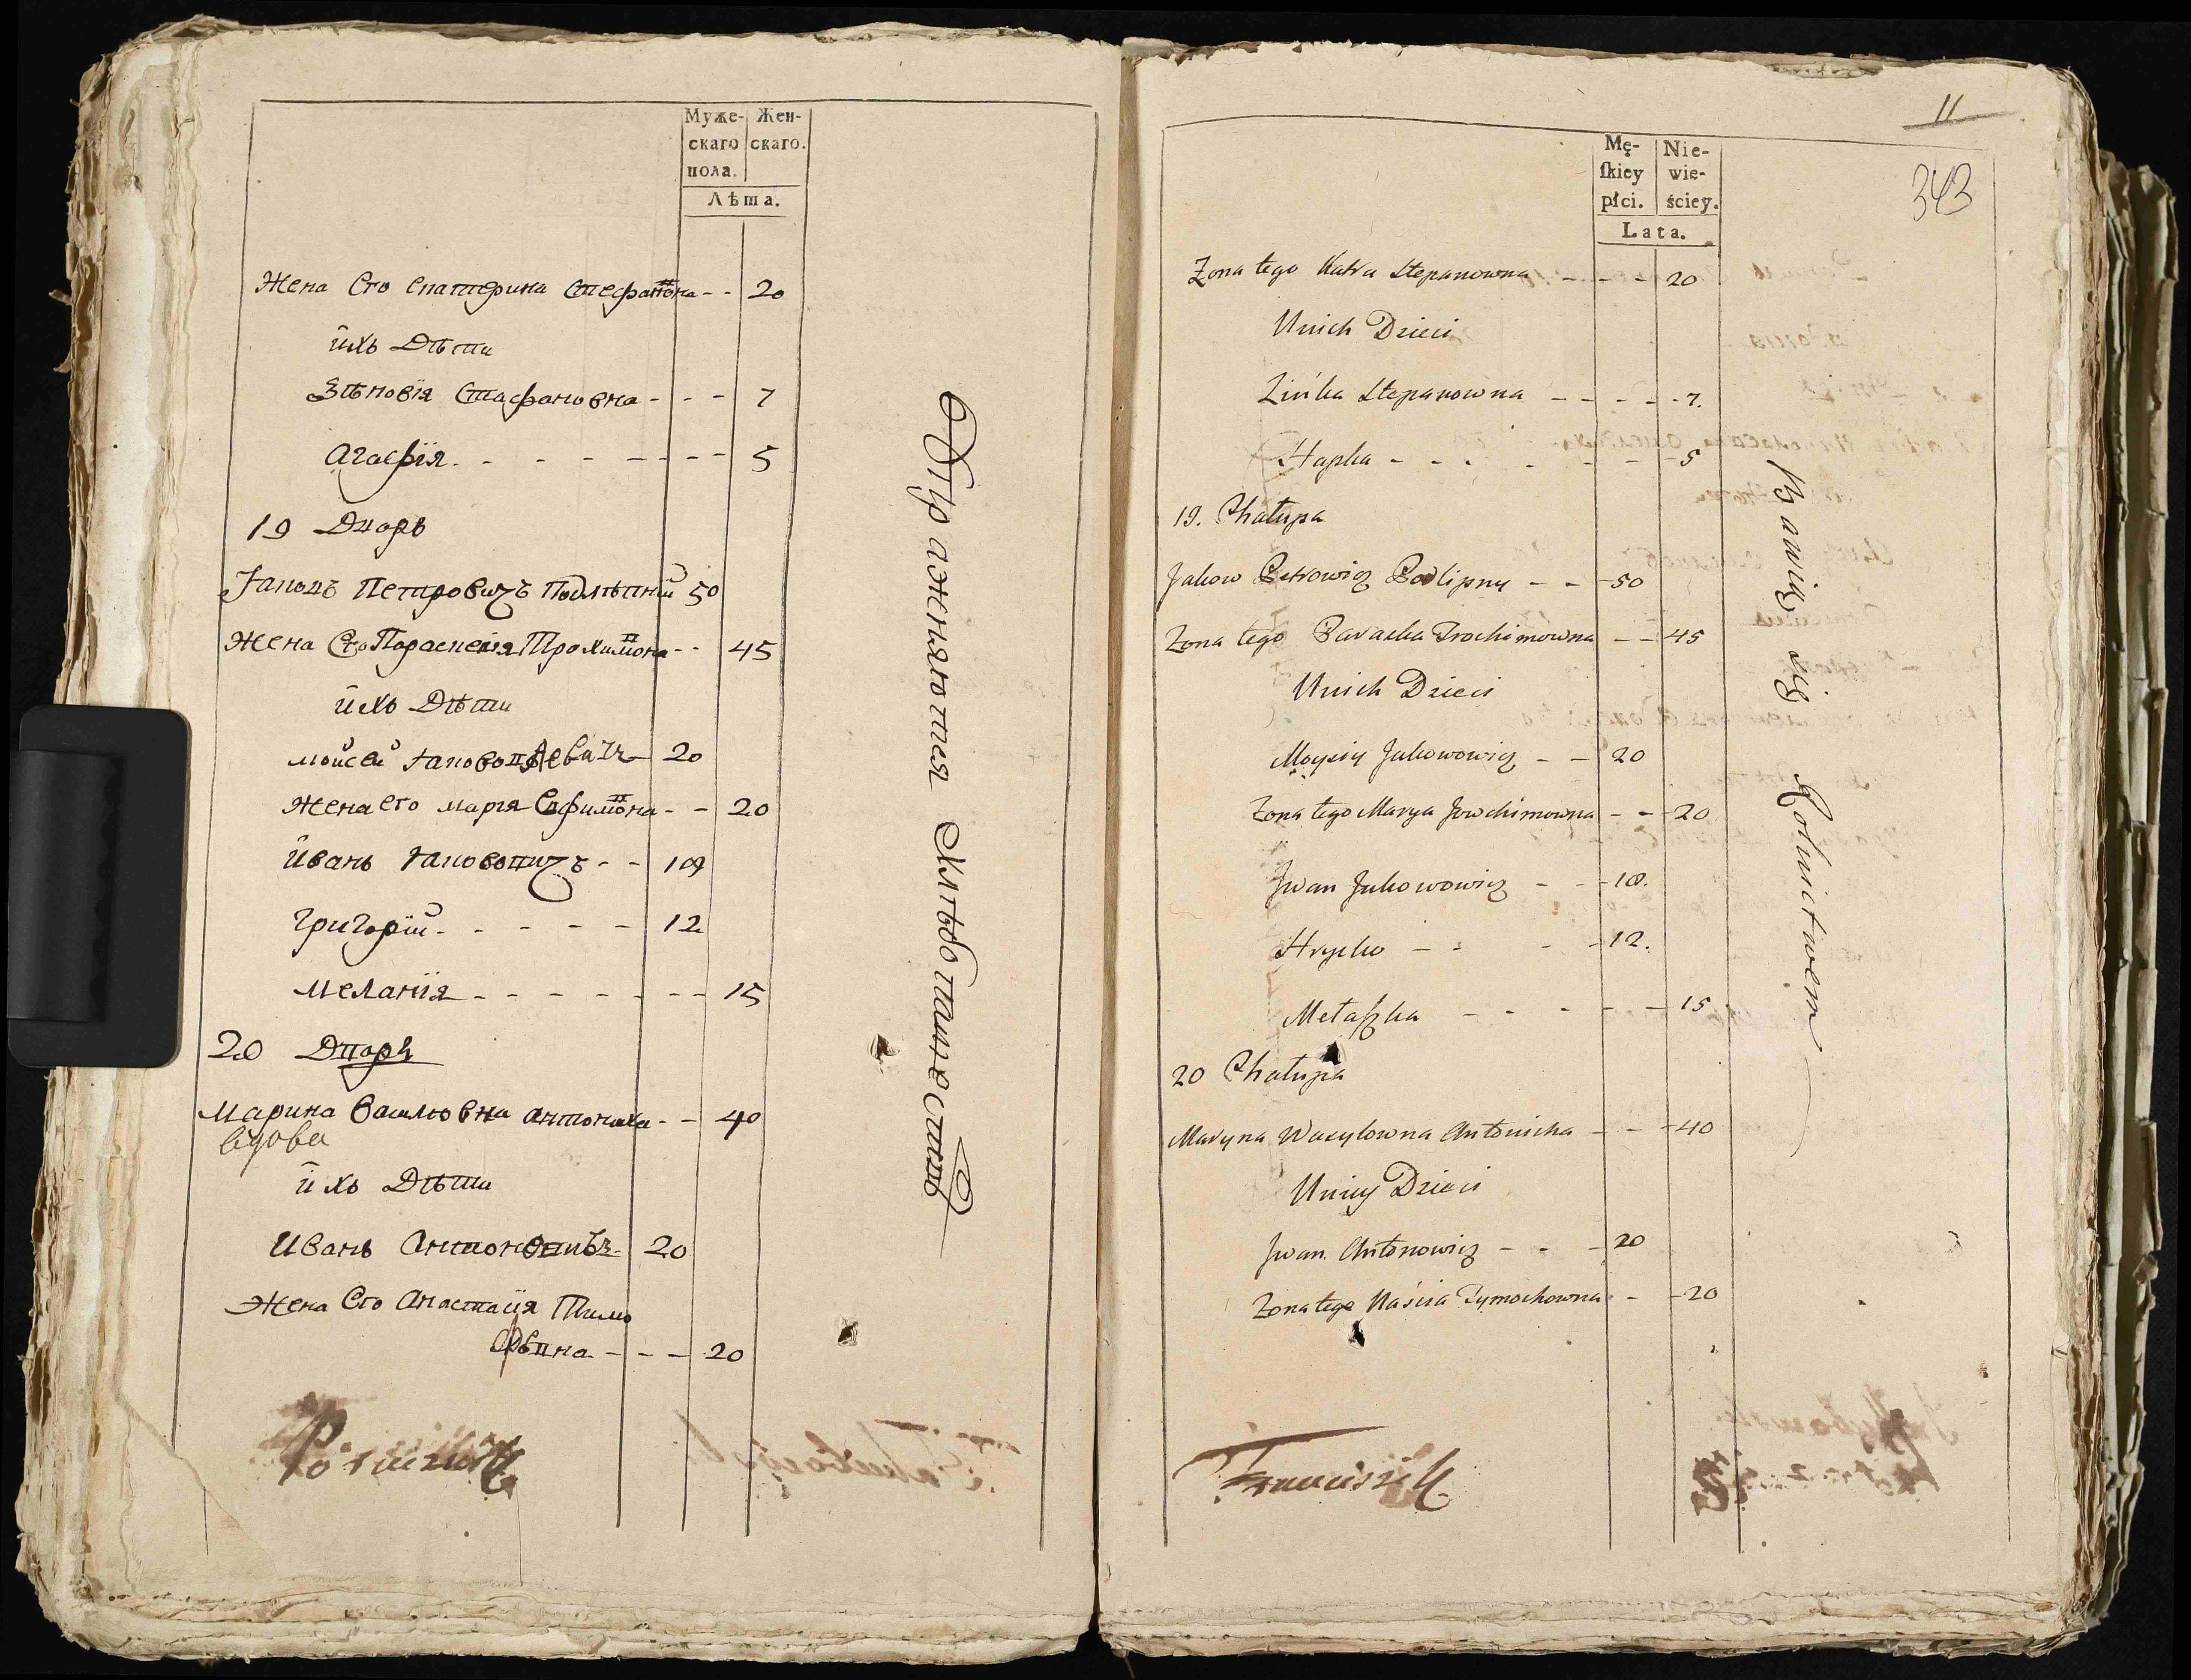 Муже-
скаго
пола.
Жен-
скаго.
Лѣта.
Жена Его Екатерина Стефановна - - 20
ихъ Дѣти
Зѣновїя Стафановна - - - 7
Агафїя - - - - - - - 5
19 Дворъ
Яковъ Петровичъ Подлѣпній 50
Жена Его Параскевія Трохимовна - - 45
ихъ Дѣти
Мойсей Яковов 20
Жена его марія Ефимовна - - 20
Иванъ Яковови҃чъ - - 18
Григорїй - - - - - 12
Меланїя - - - - - - - 15
20 Дворъ
Марина Василювна Антониха - - 40
вдова
ихъ Дѣти
Иванъ Антоновичъ - 20
Жена Его Анастасїя Тимо
фѣвна - - - 20
Упражняются Хлѣбопашествомъ
11
343
Mę-
ſkiey
płci.
Nie-
wie-
ściey.
Lata.
Zona tego Katra Stepanowna - - - 20
Unich Dzieci
Zińka Stepanowna - - - - - 7.
Hapka - - - - - - - 5
19. Chałupa
Jakow Petrowicz Podlipny - - - 50
Zona tego Paraska Trochimowna - - 45
Unich Dzieci
Moysiy Jakowowicz - - 20
Zona tego Marya Jowchimowna - - - 20
Iwan Jakowowicz - - - 18.
Hryćko - - - - 12.
Mełaszka - - - - - 15
20 Chałupa
Maryna Wasylowna Antonicha - - - 40
Uniey Dzieci
Iwan Antonowicz - - - 20
Zona tego Naścia Tymochowna - - 20
Bawią się Rolnictwem
Porucznik
Franciszek